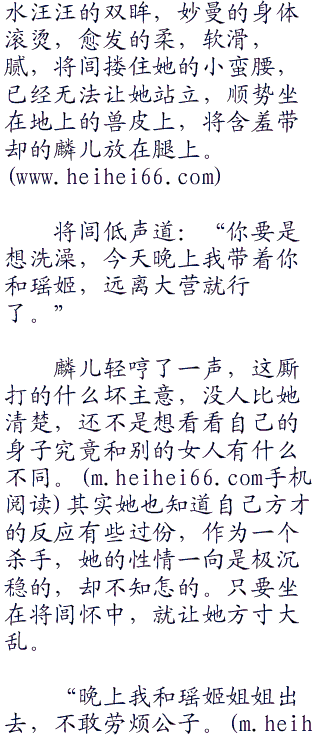 水汪汪的双眸，妙曼的身体
滚烫，愈发的柔，软滑，
腻，将闾搂住她的小蛮腰，
已经无法让她站立，顺势坐
在地上的兽皮上，将含羞带
却的麟儿放在腿上。
(www.heihei66.com)
将闾低声道：“你要是
想洗澡，今天晚上我带着你
和瑶姬，远离大营就行
了。”
麟儿轻哼了一声，这厮
打的什么坏主意，没人比她
清楚，还不是想看看自己的
身子究竟和别的女人有什么
不同。(m.heihei66.com手机
阅读)其实她也知道自己方才
的反应有些过份，作为一个
杀手，她的性情一向是极沉
稳的，却不知怎的。只要坐
在将闾怀中，就让她方寸大
乱。
“晚上我和瑶姬姐姐出
去，不敢劳烦公子。(m.heih